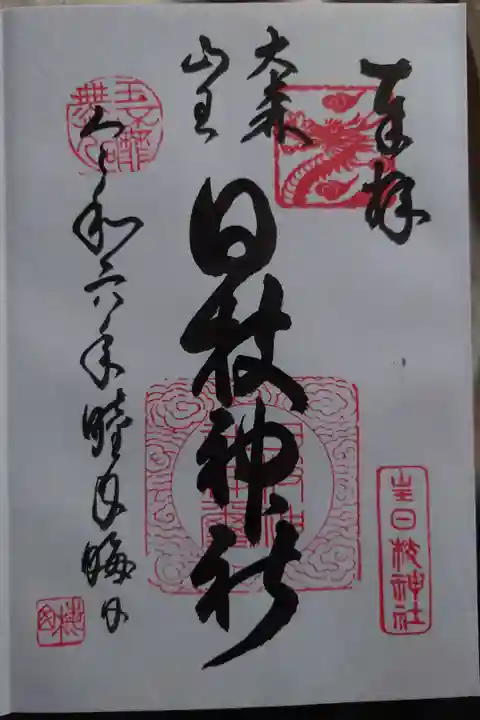 奉拝
山王日枝神社
大森
山王
日枝神社
令和六年睦月晦日